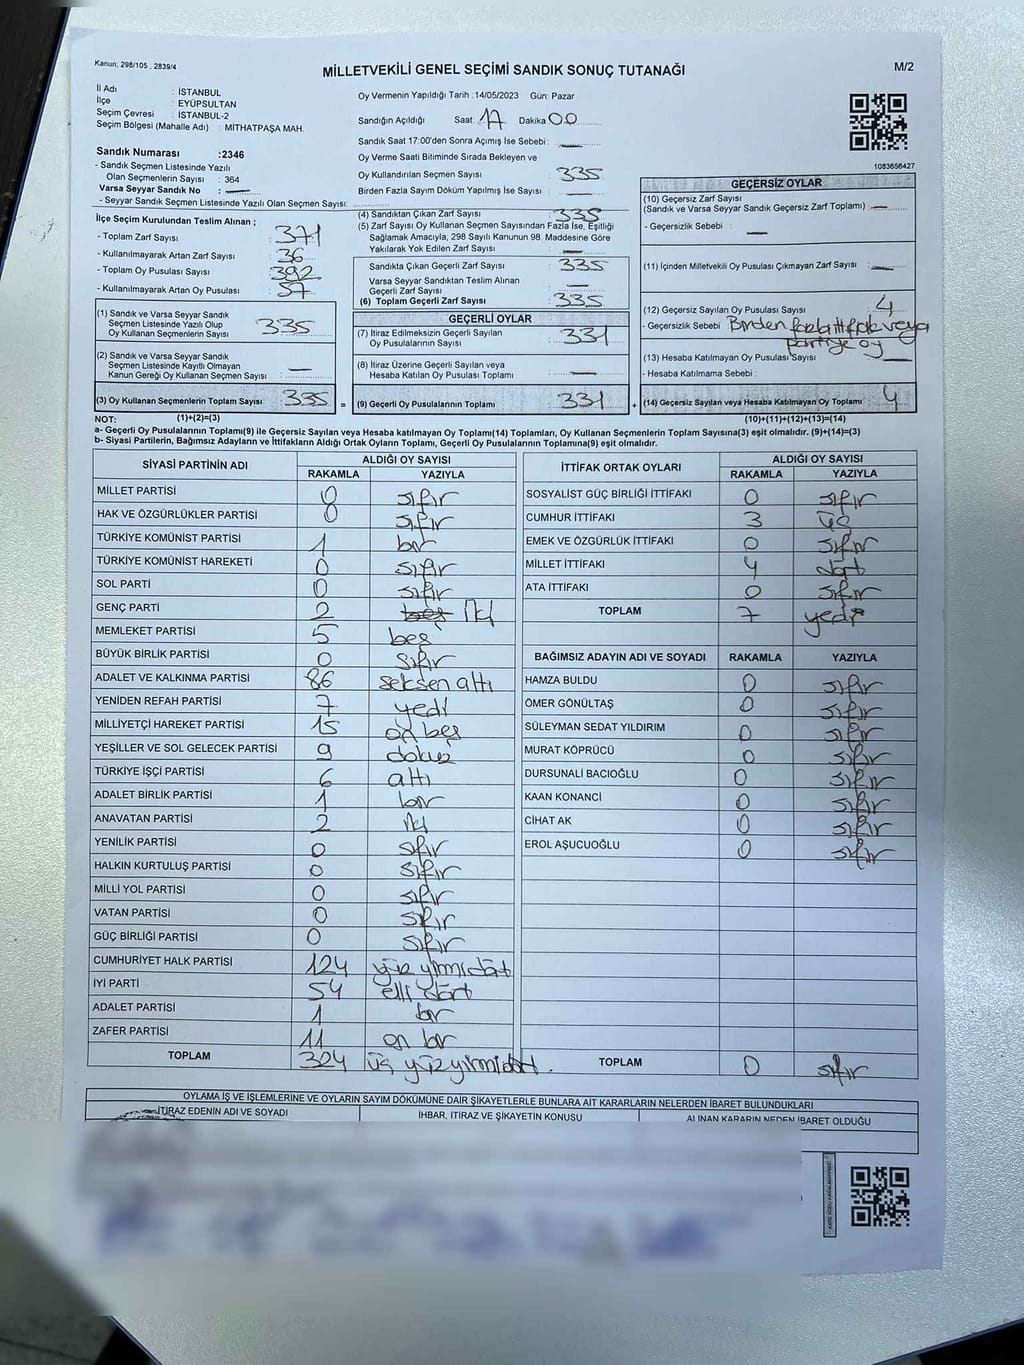 Kanun; 298/105 , 2839/4
MİLLETVEKİLİ GENEL SEÇİMİ SANDIK SONUÇ TUTANAĞI
M/2
İl Adı : İSTANBUL
İlçe : EYÜPSULTAN
Seçim Çevresi : İSTANBUL-2
Seçim Bölgesi (Mahalle Adı) : MİTHATPAŞA MAH.
Sandık Numarası :2346
- Sandık Seçmen Listesinde Yazılı
Olan Seçmenlerin Sayısı : 364
Varsa Seyyar Sandık No : —
- Seyyar Sandık Seçmen Listesinde Yazılı Olan Seçmen Sayısı:
Oy Vermenin Yapıldığı Tarih :14/05/2023 Gün: Pazar
Sandığın Açıldığı Saat: 17 Dakika 00
Sandık Saat 17:00'den Sonra Açımış İse Sebebi : —
Oy Verme Saati Bitiminde Sırada Bekleyen ve
Oy Kullandırılan Seçmen Sayısı : 335
Birden Fazla Sayım Döküm Yapılmış İse Sayısı : —
1083656427
İlçe Seçim Kurulundan Teslim Alınan ;
- Toplam Zarf Sayısı : 371
- Kullanılmayarak Artan Zarf Sayısı : 36
- Toplam Oy Pusulası Sayısı : 392
- Kullanılmayarak Artan Oy Pusulası : 57
(1) Sandık ve Varsa Seyyar Sandık
Seçmen Listesinde Yazılı Olup
Oy Kullanan Seçmenlerin Sayısı : 335
(2) Sandık ve Varsa Seyyar Sandık
Seçmen Listesinde Kayıtlı Olmayan
Kanun Gereği Oy Kullanan Seçmen Sayısı : —
(3) Oy Kullanan Seçmenlerin Toplam Sayısı : 335 =
(4) Sandıktan Çıkan Zarf Sayısı : 335
(5) Zarf Sayısı Oy Kullanan Seçmen Sayısından Fazla İse, Eşitliği
Sağlamak Amacıyla, 298 Sayılı Kanunun 98. Maddesine Göre
Yakılarak Yok Edilen Zarf Sayısı : —
Sandıkta Çıkan Geçerli Zarf Sayısı : 335
Varsa Seyyar Sandıktan Teslim Alınan
Geçerli Zarf Sayısı : —
(6) Toplam Geçerli Zarf Sayısı : 335
GEÇERLİ OYLAR
(7) İtiraz Edilmeksizin Geçerli Sayılan
Oy Pusulalarının Sayısı : 331
(8) İtiraz Üzerine Geçerli Sayılan veya
Hesaba Katılan Oy Pusulası Toplamı : —
(9) Geçerli Oy Pusulalarının Toplamı : 331 +
GEÇERSİZ OYLAR
(10) Geçersiz Zarf Sayısı
(Sandık ve Varsa Seyyar Sandık Geçersiz Zarf Toplamı) : —
- Geçersizlik Sebebi : —
(11) İçinden Milletvekili Oy Pusulası Çıkmayan Zarf Sayısı : —
(12) Geçersiz Sayılan Oy Pusulası Sayısı : 4
- Geçersizlik Sebebi : Birden fazla ittifak veya
partiye oy
(13) Hesaba Katılmayan Oy Pusulası Sayısı : —
- Hesaba Katılmama Sebebi :
(14) Geçersiz Sayılan veya Hesaba Katılmayan Oy Toplamı : 4
NOT: (1)+(2)=(3) (10)+(11)+(12)+(13)=(14)
a- Geçerli Oy Pusulalarının Toplamı(9) ile Geçersiz Sayılan veya Hesaba Katılmayan Oy Toplamı(14) Toplamları, Oy Kullanan Seçmenlerin Toplam Sayısına(3) eşit olmalıdır. (9)+(14)=(3)
b- Siyasi Partilerin, Bağımsız Adayların ve İttifakların Aldığı Ortak Oyların Toplamı, Geçerli Oy Pusulalarının Toplamına(9) eşit olmalıdır.
SİYASİ PARTİNİN ADI ALDIĞI OY SAYISI
RAKAMLA YAZIYLA
MİLLET PARTİSİ 0 sıfır
HAK VE ÖZGÜRLÜKLER PARTİSİ 0 sıfır
TÜRKİYE KOMÜNİST PARTİSİ 1 bir
TÜRKİYE KOMÜNİST HAREKETİ 0 sıfır
SOL PARTİ 0 sıfır
GENÇ PARTİ 2 beş iki
MEMLEKET PARTİSİ 5 beş
BÜYÜK BİRLİK PARTİSİ 0 sıfır
ADALET VE KALKINMA PARTİSİ 86 seksen altı
YENİDEN REFAH PARTİSİ 7 yedi
MİLLİYETÇİ HAREKET PARTİSİ 15 on beş
YEŞİLLER VE SOL GELECEK PARTİSİ 9 dokuz
TÜRKİYE İŞÇİ PARTİSİ 6 altı
ADALET BİRLİK PARTİSİ 1 bir
ANAVATAN PARTİSİ 2 iki
YENİLİK PARTİSİ 0 sıfır
HALKIN KURTULUŞ PARTİSİ 0 sıfır
MİLLİ YOL PARTİSİ 0 sıfır
VATAN PARTİSİ 0 sıfır
GÜÇ BİRLİĞİ PARTİSİ 0 sıfır
CUMHURİYET HALK PARTİSİ 124 yüz yirmi dört
İYİ PARTİ 54 elli dört
ADALET PARTİSİ 1 bir
ZAFER PARTİSİ 11 on bir
TOPLAM 324 üç yüz yirmi dört.
İTTİFAK ORTAK OYLARI ALDIĞI OY SAYISI
RAKAMLA YAZIYLA
SOSYALİST GÜÇ BİRLİĞİ İTTİFAKI 0 sıfır
CUMHUR İTTİFAKI 3 üç
EMEK VE ÖZGÜRLÜK İTTİFAKI 0 sıfır
MİLLET İTTİFAKI 4 dört
ATA İTTİFAKI 0 sıfır
TOPLAM 7 yedi
BAĞIMSIZ ADAYIN ADI VE SOYADI RAKAMLA YAZIYLA
HAMZA BULDU 0 sıfır
ÖMER GÖNÜLTAŞ 0 sıfır
SÜLEYMAN SEDAT YILDIRIM 0 sıfır
MURAT KÖPRÜCÜ 0 sıfır
DURSUNALİ BACIOĞLU 0 sıfır
KAAN KONANCİ 0 sıfır
CİHAT AK 0 sıfır
EROL AŞUCUOĞLU 0 sıfır
TOPLAM 0 sıfır
OYLAMA İŞ VE İŞLEMLERİNE VE OYLARIN SAYIM DÖKÜMÜNE DAİR ŞİKAYETLERLE BUNLARA AİT KARARLARIN NELERDEN İBARET BULUNDUKLARI
İTİRAZ EDENİN ADI VE SOYADI İHBAR, İTİRAZ VE ŞİKAYETİN KONUSU ALINAN KARARIN NEDEN İBARET OLDUĞU